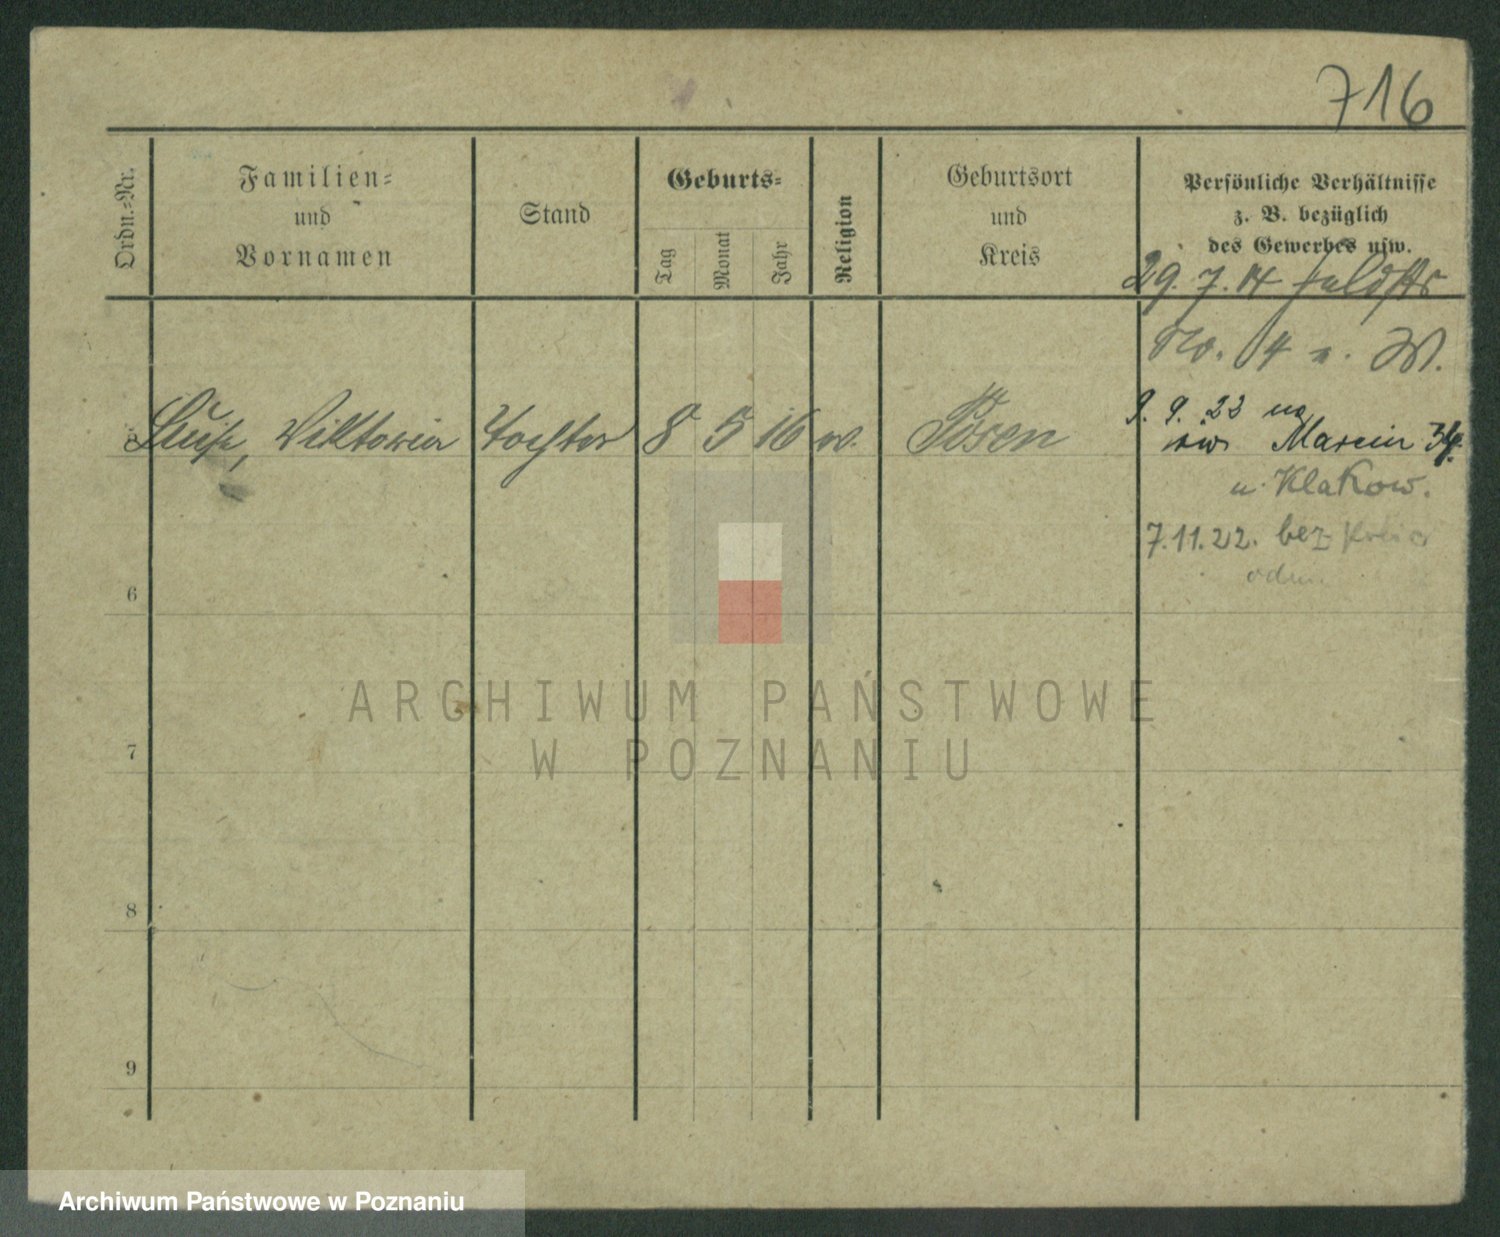 716
Ordn.-Nr.
Familien-
und
Vornamen
Stand
Geburts-
Tag
Monat
Jahr
Religion
Geburtsort
und
Kreis
Persönliche Verhältnisse
z. B. bezüglich
des Gewerbes usw.
29. 7. 14
No. 4 u. W.
Viktoria Tochter 8 5 16 Posen
9. 9. 22 na
Marcin 34
u. Klakow.
7.11.22. bez
6
7
8
9
ARCHIWUM PAŃSTWOWE
W POZNANIU
Archiwum Państwowe w Poznaniu